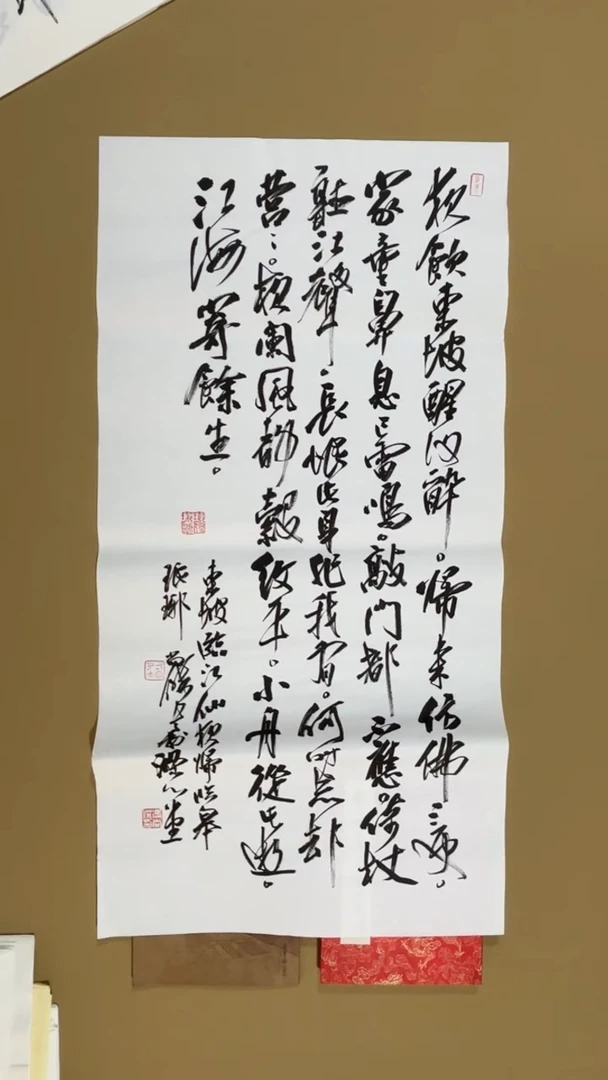 夜飲東坡醒復醉。歸來仿佛三更。
家童鼻息已雷鳴。敲門都不應。倚杖
聽江聲。長恨此身非我有。何時忘卻
營營。夜闌風靜縠紋平。小舟從此逝。
江海寄餘生。
東坡臨江仙夜歸臨皋
琅琊